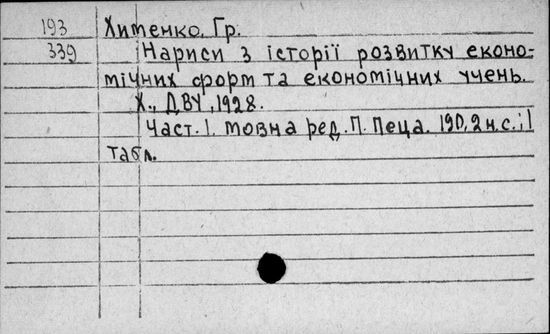 193 Хименко, Гр.
339 Нариси з історії розвитку еконо-
мічних форм та економічних учень.
Х., ДВУ, 1928.
Част. 1. мовна ред. П. Пеца. 190, 2 н.с.; 1
табл.